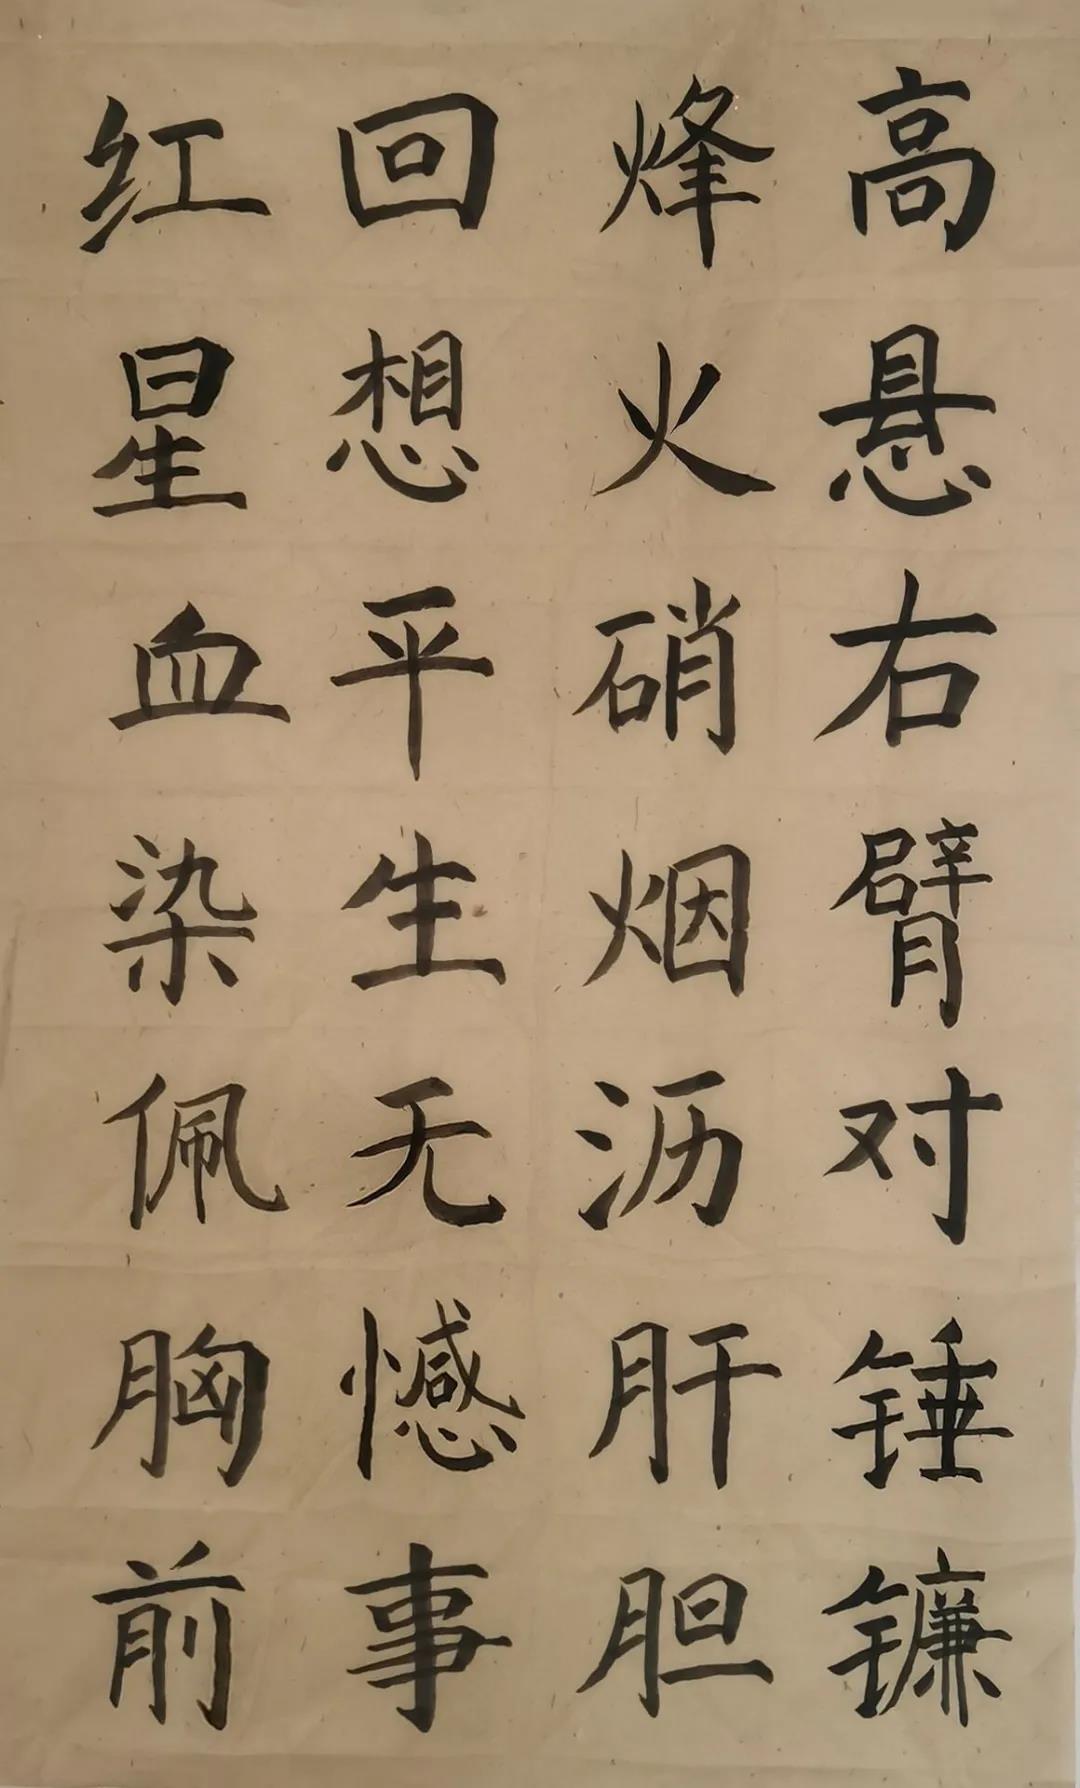 高悬右臂对锤镰
烽火硝烟沥肝胆
回想平生无憾事
红星血染佩胸前